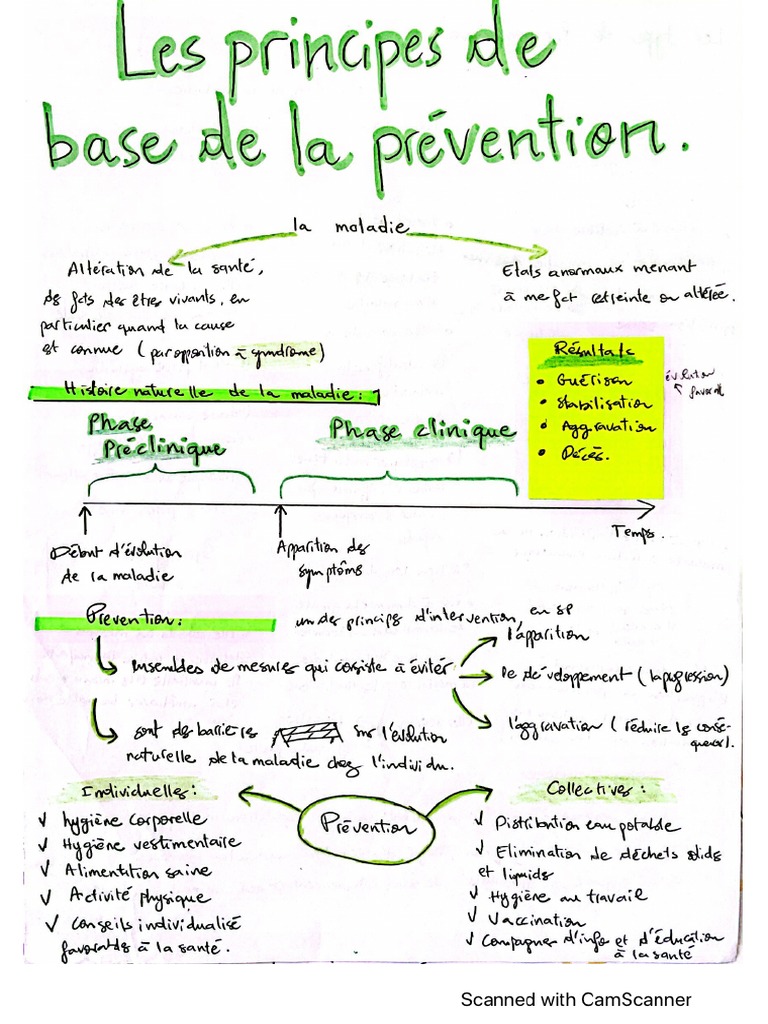 Les principes de
base de la prévention.
la maladie
Altération de la santé,
des fcts des êtres vivants, en
particulier quand la cause
est connue (par opposition à syndrome)
Etats anormaux menant
à une fct retreinte ou altérée.
Résultats
• Guérison
• Stabilisation
• Aggravation
• Décés.
évolution
favorable
Histoire naturelle de la maladie:
Phase
Préclinique
Phase clinique
Temps.
Début d'évolution
de la maladie
Apparition des
symptôms
Prevention:
un des princips d'intervention en SP
ensembles de mesures qui cosiste à évitér
l'apparition
le dévoloppement (la pogression)
l'aggravation (réduire ls consé-
quences).
sont des barrières sur l'évolution
naturelle de la maladie chez l'individu.
Prévention
Individuelles:
✓ hygiène corporelle
✓ Hygiène vestimentaire
✓ Alimentition saine
✓ Activité physique
✓ Conseils individualisé
favorables à la santé.
Collectives:
✓ Distribution eau potable
✓ Elimination de déchets solids
et liquids
✓ Hygiène au travail
✓ Vaccination
✓ Compagnes d'info et d'éducation
à la santé
Scanned with CamScanner